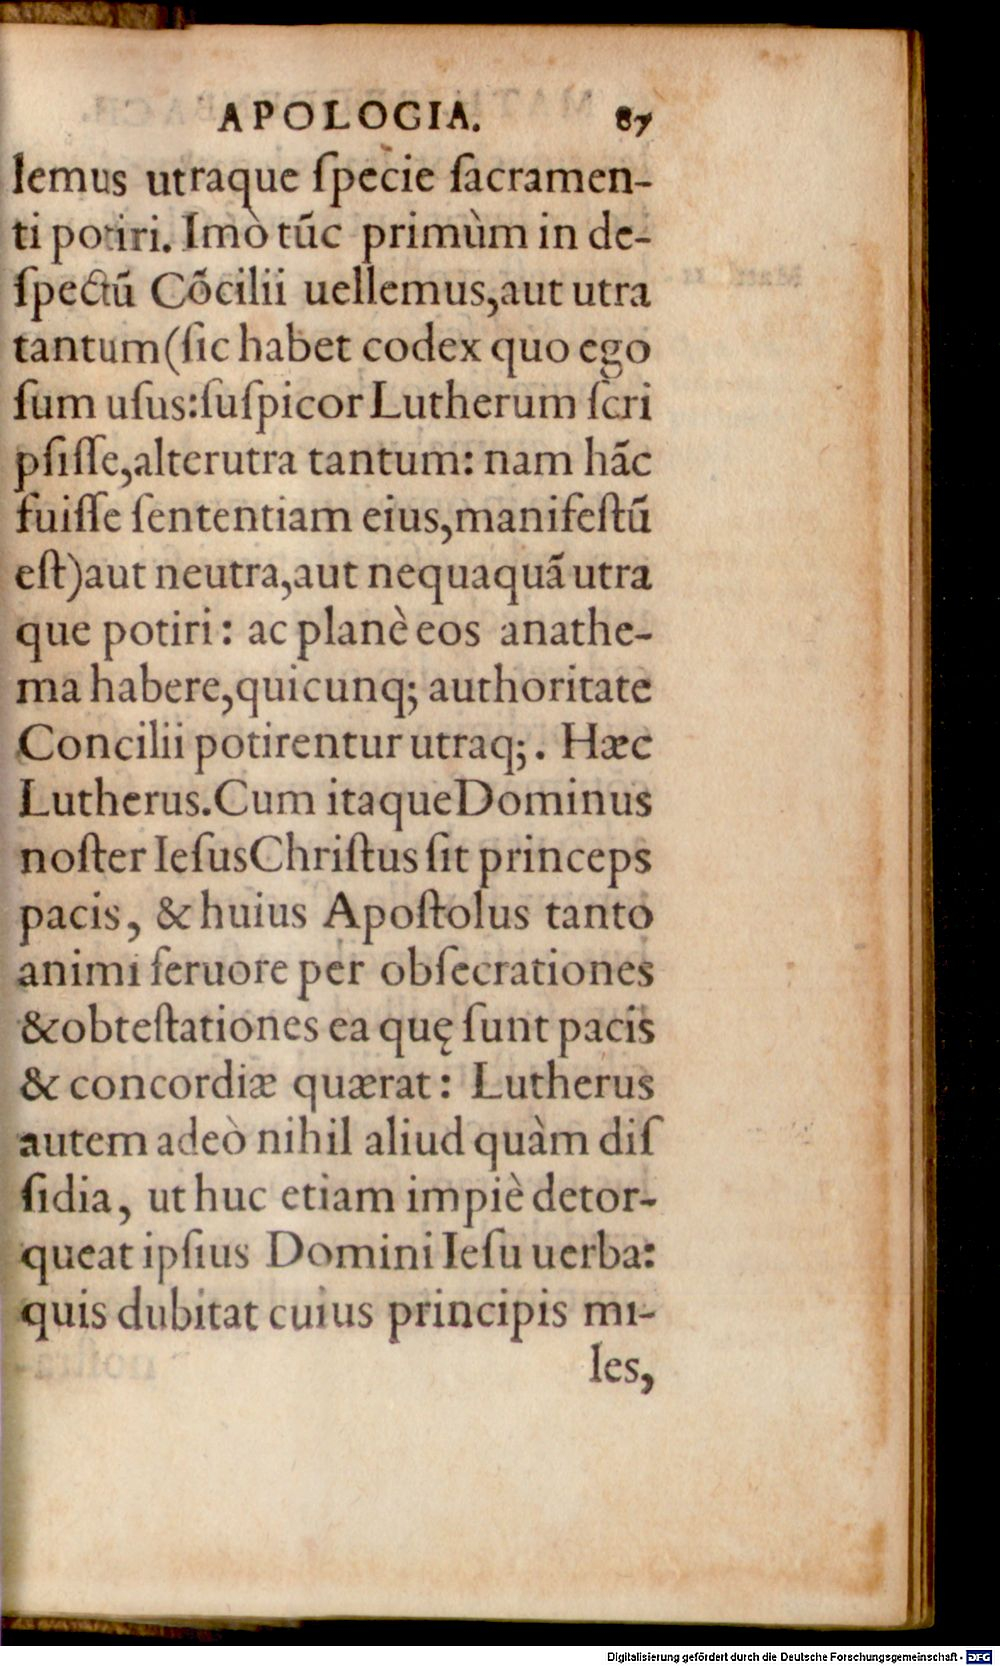 APOLOGIA. 87
lemus utraque ſpecie ſacramen-
ti potiri. Imò tũc primùm in de-
ſpectũ Cõcilii uellemus,aut utra
tantum(ſic habet codex quo ego
ſum uſus:ſuſpicor Lutherum ſcri
pſiſſe,alterutra tantum: nam hãc
fuiſſe ſententiam eius,manifeſtũ
eſt)aut neutra,aut nequaquã utra
que potiri: ac planè eos anathe-
ma habere,quicunq; authoritate
Concilii potirentur utraq;. Hæc
Lutherus.Cum itaque Dominus
noſter Ieſus Chriſtus ſit princeps
pacis, & huius Apoſtolus tanto
animi feruore per obſecrationes
& obteſtationes ea quę ſunt pacis
& concordiæ quærat: Lutherus
autem adeò nihil aliud quàm diſ
ſidia, ut huc etiam impiè detor-
queat ipſius Domini Ieſu uerba:
quis dubitat cuius principis mi-
les,
Digitalisierung gefördert durch die Deutsche Forschungsgemeinschaft - DFG